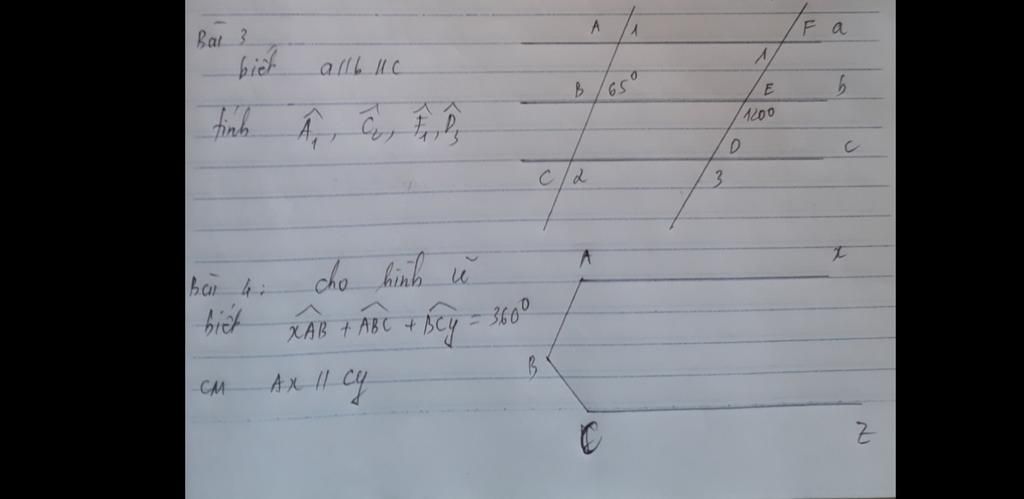 Bài 3
biết a//b//c
tính Â₁, Ĉ₂, F̂₁, D̂₃
A 1 F a
1
B 65⁰ E b
120⁰
D c
C 2 3
Bài 4: cho hình vẽ
biết xAB + ABC + BCy = 360⁰
CM Ax // Cy
A x
B
C z